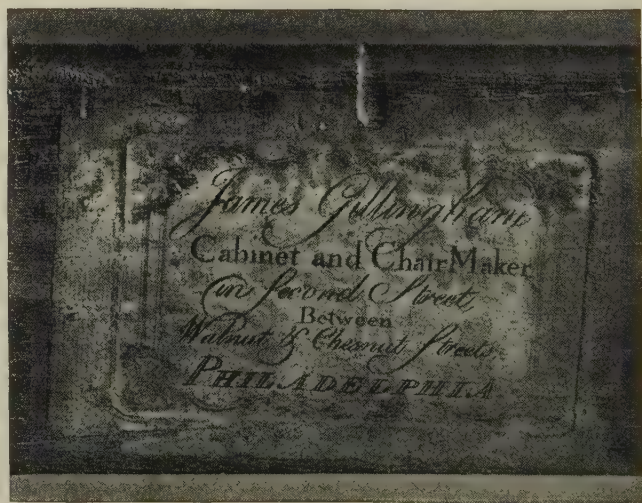 James Gillingham
Cabinet and Chair Maker
in Second Street,
Between
Walnut & Chesnut Streets
PHILADELPHIA